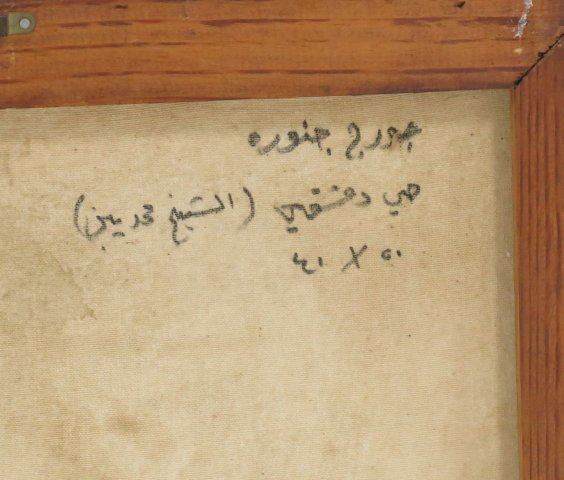 جورج جنوره
حي دمشقي (الشيخ محي الدين)
٥٠ X ٤١